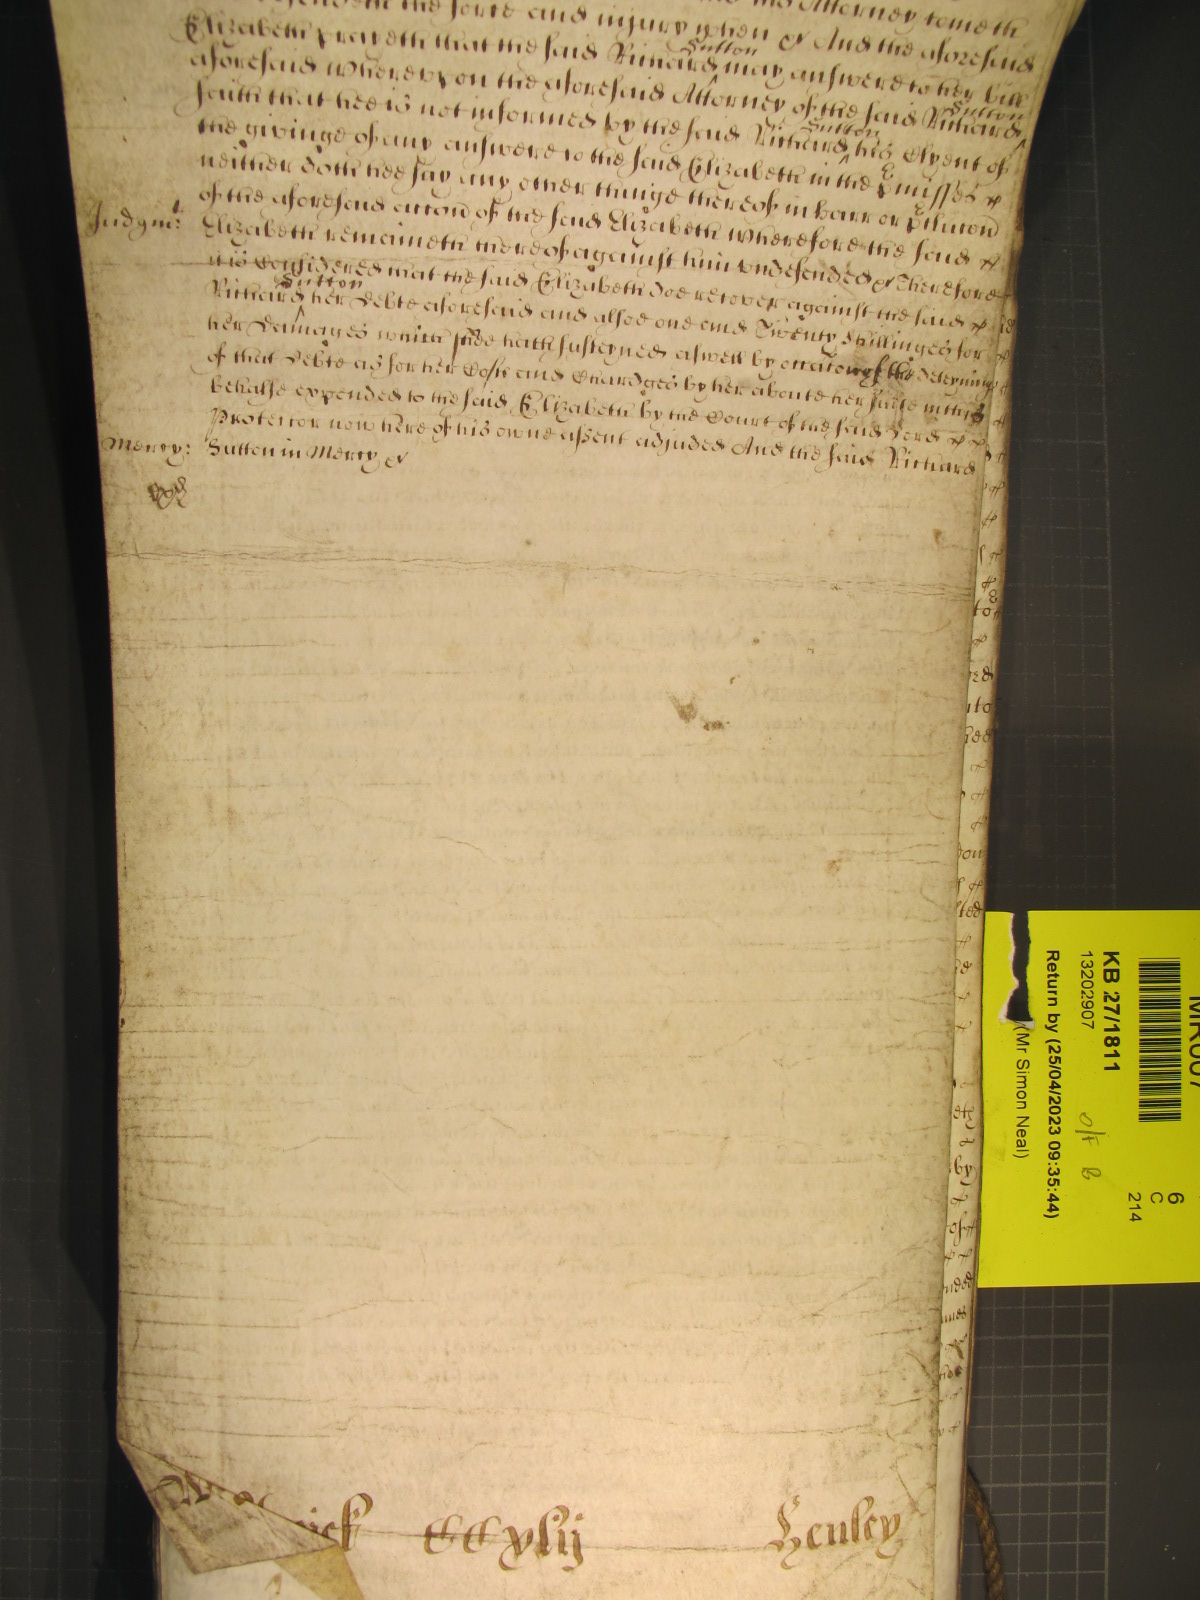 defendeth the force and injury when &c And the aforesaid
Elizabeth prayeth that the said Richard Sutton may answere to her bill
aforesaid whereupon the aforesaid Attorney of the said Richard Sutton
saith that hee is not informed by the said Richard Sutton his Clyent of
the givinge of any answere to the said Elizabeth in the p̱misses &
neither doth hee say any other thinge thereof in barr or p̱clusion
of the aforesaid accon̄ of the said Elizabeth wherefore the said &
Judgmt: Elizabeth remaineth thereof against him undefended &c Therefore
it is Considered that the said Elizabeth doe recover against the said &
Richard Sutton her Debte aforesaid and alsoe one and Twenty shillinges for
her Dam̄ages which shee hath susteyned aswell by occation of the deteyning
of that Debte as for her Costs and Chardges by her aboute her suite in this
behalfe expended to the said Elizabeth by the Court of the said Lord & &
Protector now here of his owne assent adjudged And the said Richard
Mercy: Sutton in Mercy &c
CCxlij
Henley
MR007
6
C
214
KB 27/1811
13202907
Return by (25/04/2023 09:35:44)
(Mr Simon Neal)